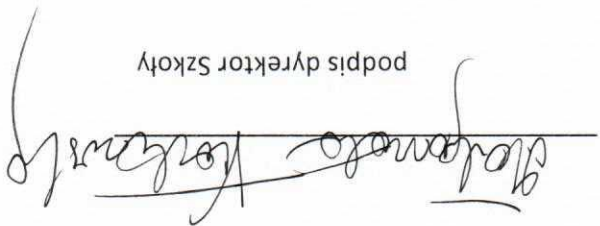 Małgorzata
podpis dyrektor Szkoły